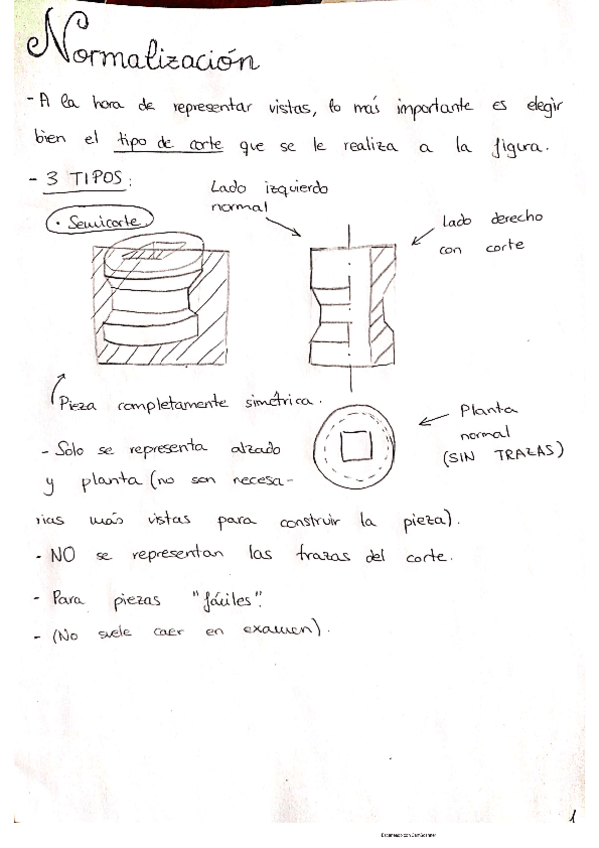 Normalización
- A la hora de representar vistas, lo más importante es elegir
bien el tipo de corte que se le realiza a la figura.
- 3 TIPOS:
· Semicorte
Lado izquierdo
normal
lado derecho
con corte
Pieza completamente simétrica.
Planta
normal
(SIN TRAZAS)
- Sólo se representa alzado
y planta (no son necesa-
rias más vistas para construir la pieza).
- NO se representan las trazas del corte.
- Para piezas "fáciles".
- (No suele caer en examen).
1
Escaneado con CamScanner